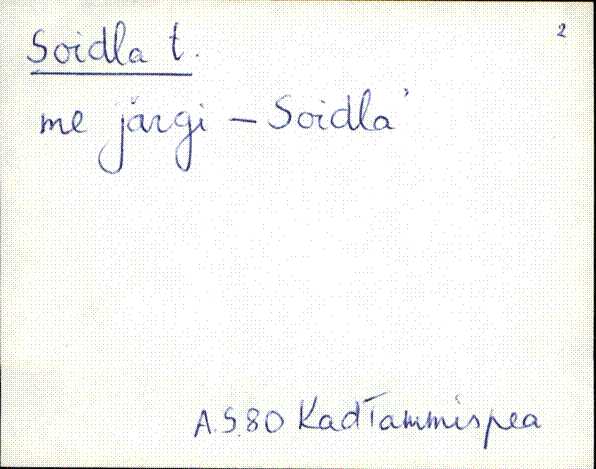 2
Soidla t.
me järgi – Soidla'
A.S. 80 Kad Tammispea